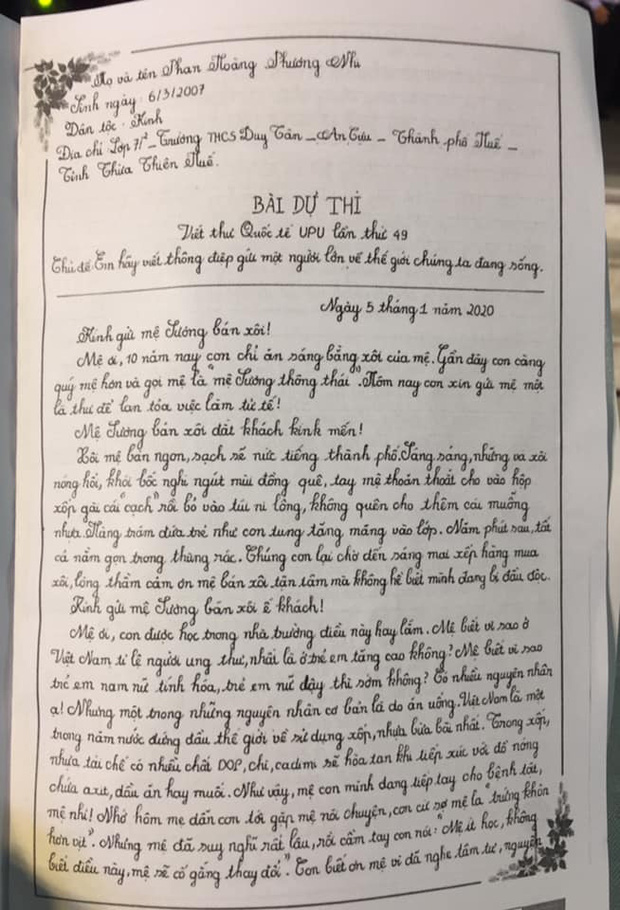 Họ và tên Phan Hoàng Phương Nhi
Sinh ngày: 6/3/2007
Dân tộc: Kinh
Địa chỉ Lớp 7/2 _ Trường THCS Duy Tân _ An Cựu _ Thành phố Huế _
Tỉnh Thừa Thiên Huế.
BÀI DỰ THI
Viết thư Quốc tế UPU lần thứ 49
Chủ đề: Em hãy viết thông điệp gửi một người lớn về thế giới chúng ta đang sống.
Ngày 5 tháng 1 năm 2020
Kính gửi mệ Sương bán xôi!
Mệ ơi, 10 năm nay con chỉ ăn sáng bằng xôi của mệ. Gần đây con càng
quý mệ hơn và gọi mệ là "mệ Sương thông thái". Hôm nay con xin gửi mệ một
lá thư để lan tỏa việc làm tử tế!
Mệ Sương bán xôi đắt khách kính mến!
Xôi mệ bán ngon, sạch sẽ nức tiếng thành phố. Sáng sáng, những vá xôi
nóng hổi, khói bốc nghi ngút mùi đồng quê, tay mệ thoăn thoắt cho vào hộp
xốp gài cái "cạch" rồi bỏ vào túi ni lông, không quên cho thêm cái muỗng
nhựa. Hàng trăm đứa trẻ như con tung tăng mang vào lớp. Năm phút sau, tất
cả nằm gọn trong thùng rác. Chúng con lại chờ đến sáng mai xếp hàng mua
xôi, lòng thầm cảm ơn mệ bán xôi tận tâm mà không hề biết mình đang bị đầu độc.
Kính gửi mệ Sương bán xôi ế khách!
Mệ ơi, con được học trong nhà trường điều này hay lắm. Mệ biết vì sao ở
Việt Nam tỉ lệ người ung thư, nhất là ở trẻ em tăng cao không? Mệ biết vì sao
trẻ em nam nữ tính hóa, trẻ em nữ dậy thì sớm không? Có nhiều nguyên nhân
ạ! Nhưng một trong những nguyên nhân cơ bản là do ăn uống. Việt Nam là một
trong năm nước đứng đầu thế giới về sử dụng xốp, nhựa bừa bãi nhất. Trong xốp,
nhựa tái chế có nhiều chất DOP, chì, cadimi sẽ hòa tan khi tiếp xúc với đồ nóng
chứa axit, dầu ăn hay muối. Như vậy, mệ con mình đang tiếp tay cho bệnh tật,
mệ nhỉ! Nhớ hôm mẹ dẫn con tới gặp mệ nói chuyện, con cứ sợ mệ la "trứng khôn
hơn vịt". Nhưng mệ đã suy nghĩ rất lâu, rồi cầm tay con nói: "Mệ ít học, không
biết điều này, mệ sẽ cố gắng thay đổi". Con biết ơn mệ vì đã nghe tâm tư, nguyện